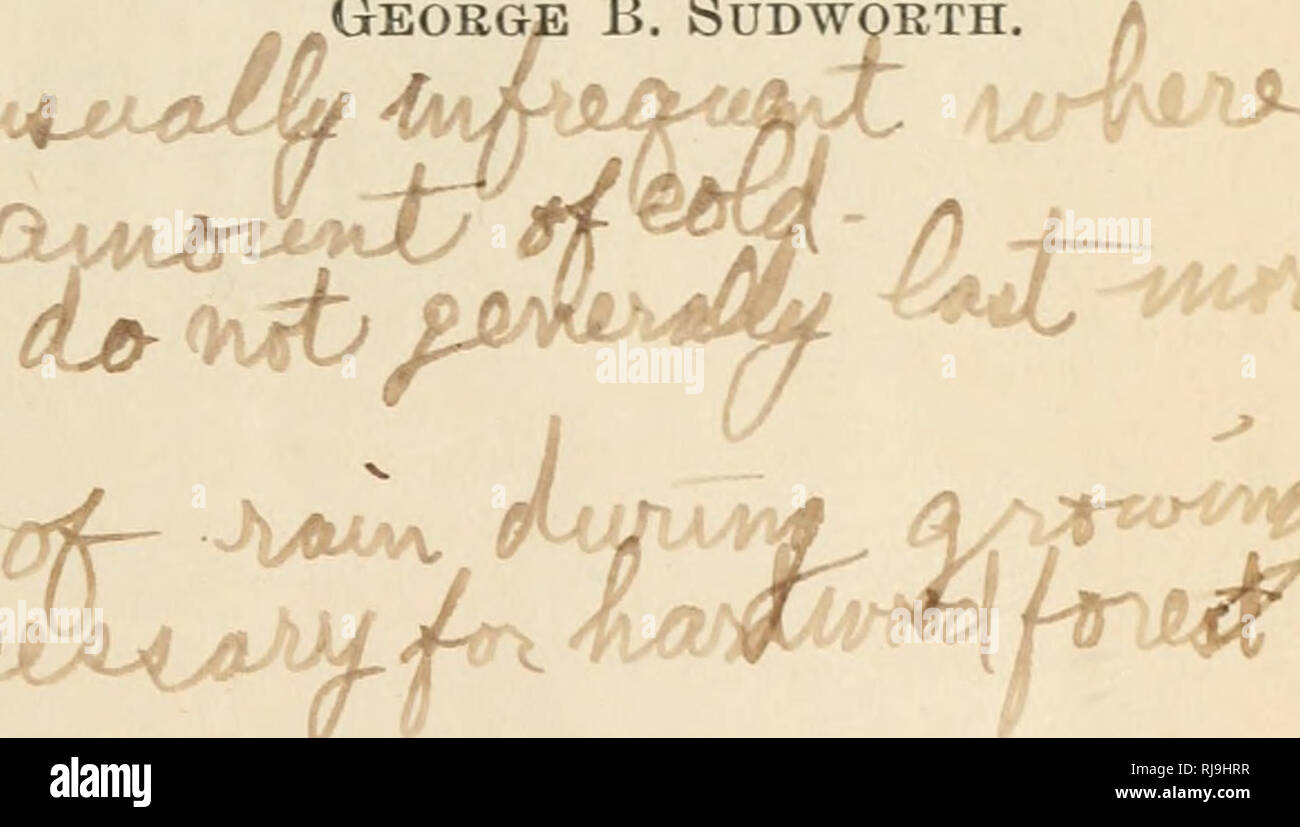 GEORGE B. SUDWORTH.
usually infrequent where
amount of cold-
do not generally last mor
of rain during growing
essary for hardwood forest
alamy
Image ID: RJ9HRR
www.alamy.com